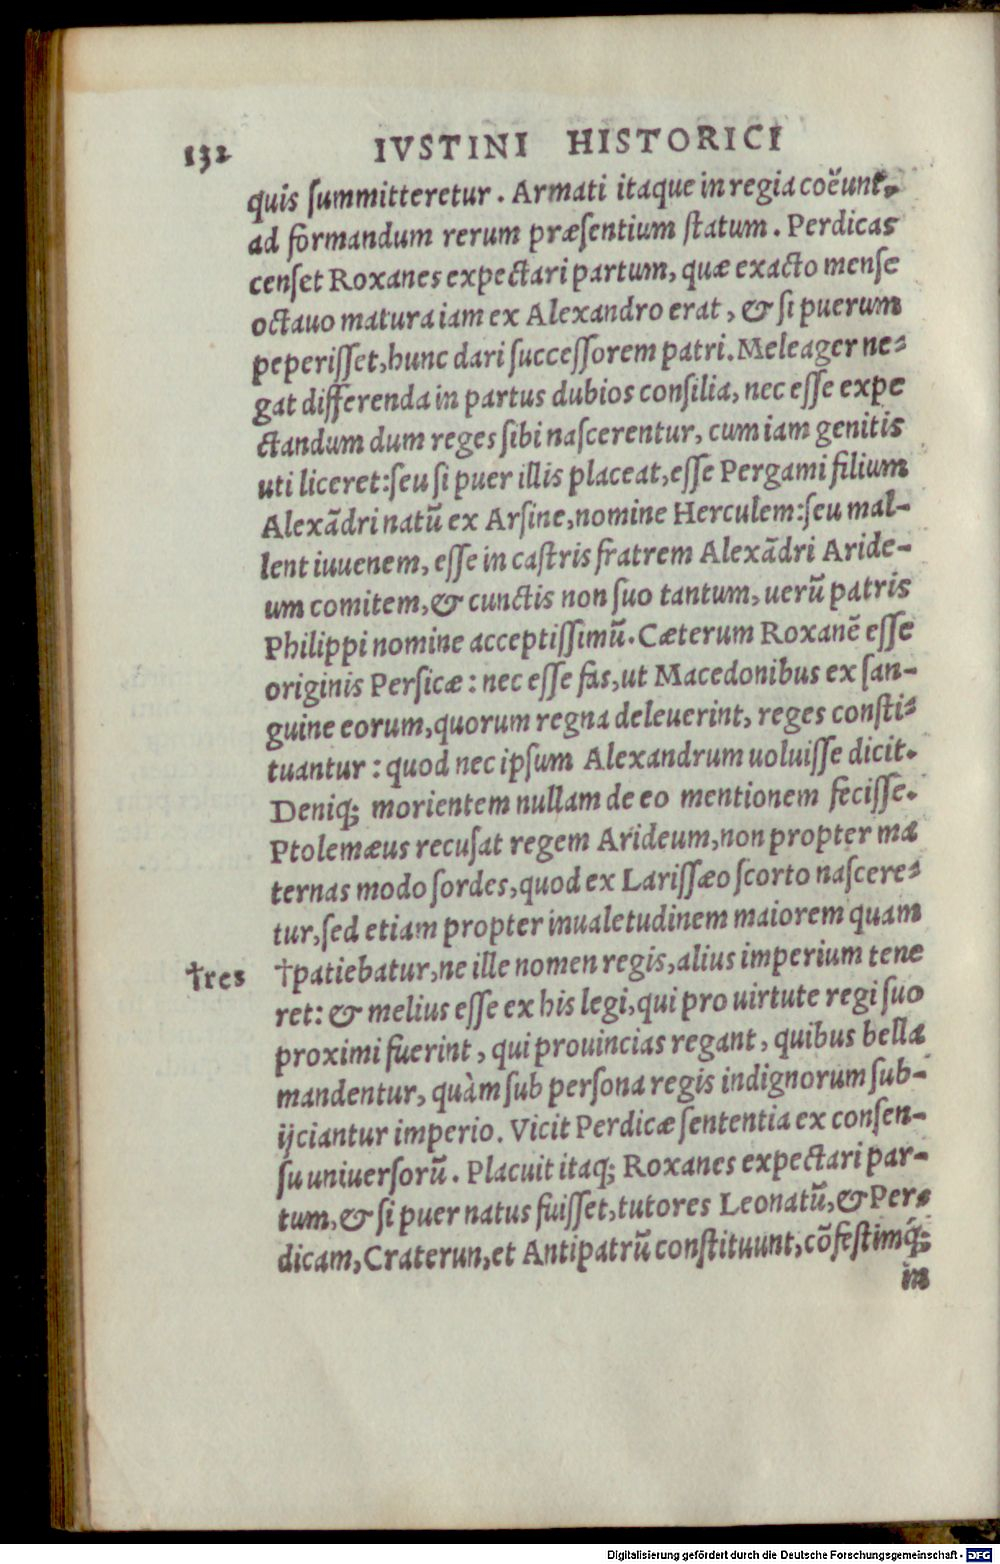 132 IVSTINI HISTORICI
quis ſummitteretur. Armati itaque in regia coëunt,
ad formandum rerum præſentium ſtatum. Perdicas
cenſet Roxanes expectari partum, quæ exacto menſe
octauo matura iam ex Alexandro erat, & ſi puerum
peperiſſet, hunc dari ſucceſſorem patri. Meleager ne-
gat differenda in partus dubios conſilia, nec eſſe expe
ctandum dum reges ſibi naſcerentur, cum iam genitis
uti liceret: ſeu ſi puer illis placeat, eſſe Pergami filium
Alexādri natū ex Arſine, nomine Herculem: ſeu mal-
lent iuuenem, eſſe in caſtris fratrem Alexādri Aride-
um comitem, & cunctis non ſuo tantum, uerū patris
Philippi nomine acceptiſſimū. Cæterum Roxanē eſſe
originis Perſicæ: nec eſſe fas, ut Macedonibus ex ſan-
guine eorum, quorum regna deleuerint, reges conſti-
tuantur: quod nec ipſum Alexandrum uoluiſſe dicit.
Deniq; morientem nullam de eo mentionem feciſſe.
Ptolemæus recuſat regem Arideum, non propter ma
ternas modo ſordes, quod ex Lariſſæo ſcorto naſcere-
tur, ſed etiam propter inualetudinem maiorem quam
†res †patiebatur, ne ille nomen regis, alius imperium tene
ret: & melius eſſe ex his legi, qui pro uirtute regi ſuo
proximi fuerint, qui prouincias regant, quibus bella
mandentur, quàm ſub perſona regis indignorum ſub-
ijciantur imperio. Vicit Perdicæ ſententia ex conſen-
ſu uniuerſorū. Placuit itaq; Roxanes expectari par-
tum, & ſi puer natus fuiſſet, tutores Leonatū, & Per-
dicam, Craterun, et Antipatrū conſtituunt, cōfeſtimq́;
in
Digitalisierung gefördert durch die Deutsche Forschungsgemeinschaft - DFG